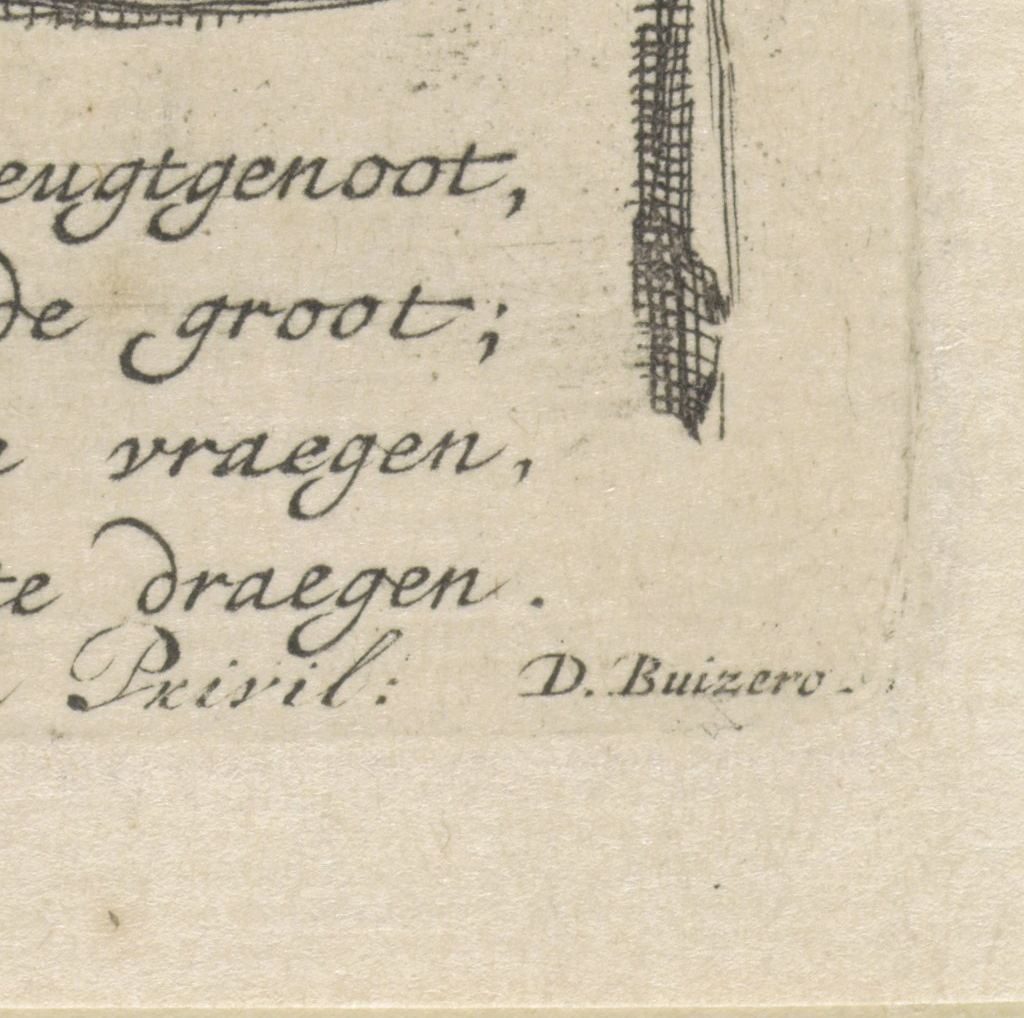 eugtgenoot,
de groot;
vraegen,
te draegen.
Privil: D. Buizero.